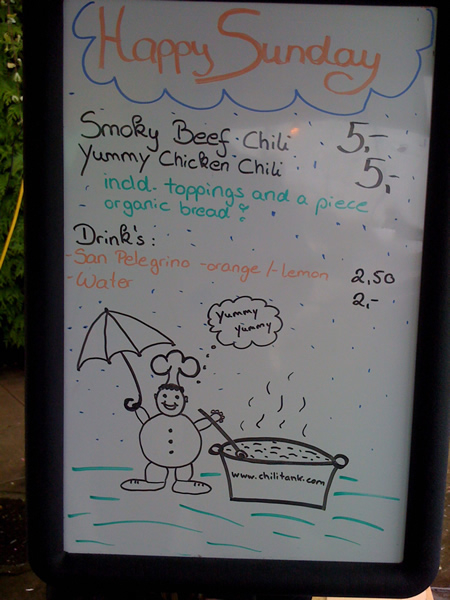 Happy Sunday
Smoky Beef Chili 5,-
Yummy Chicken Chili 5,-
incld. toppings and a piece
organic bread
Drink's:
-San Pelegrino -orange/-lemon 2,50
-Water 2,-
yummy
yummy
www.chilitank.com